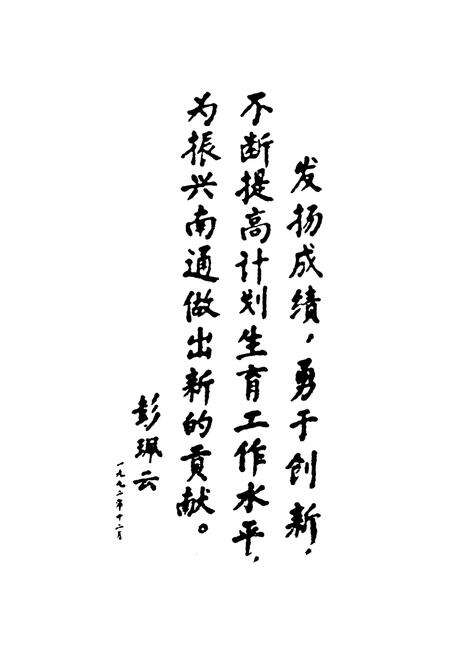 发扬成绩，勇于创新，
不断提高计划生育工作水平，
为振兴南通做出新的贡献。
彭珮云
一九九二年十二月